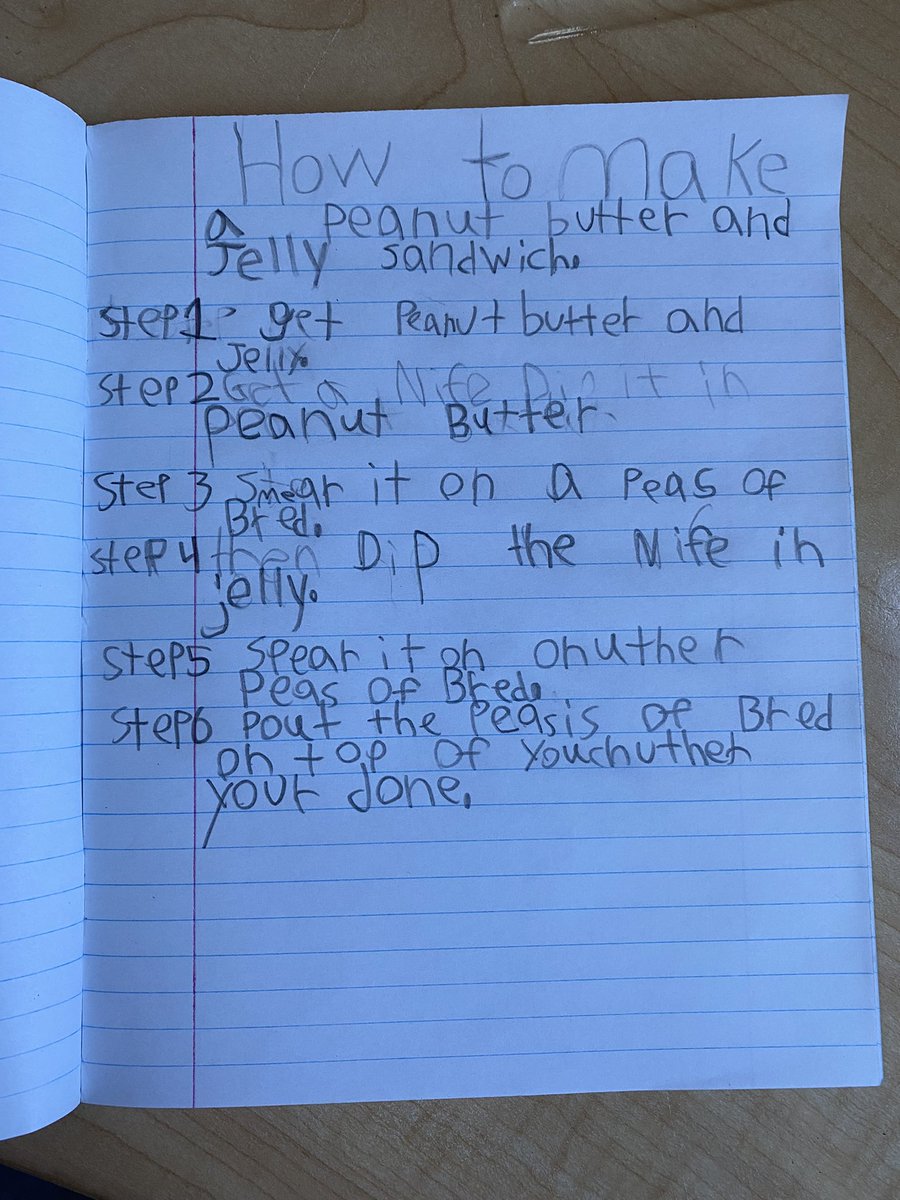 How to make
a peanut butter and
Jelly sandwich.
Step 1: get Peanut butter and
Jelly.
Step 2 Get a Nife Dip it in
peanut Butter.
Step 3 Smear it on a Peas of
Bred.
Step 4 then Dip the Nife in
jelly.
Step 5 Spear it on onuther
Peas of Bred.
Step 6 pout the Peasis of Bred
on top of youchuther
your done.